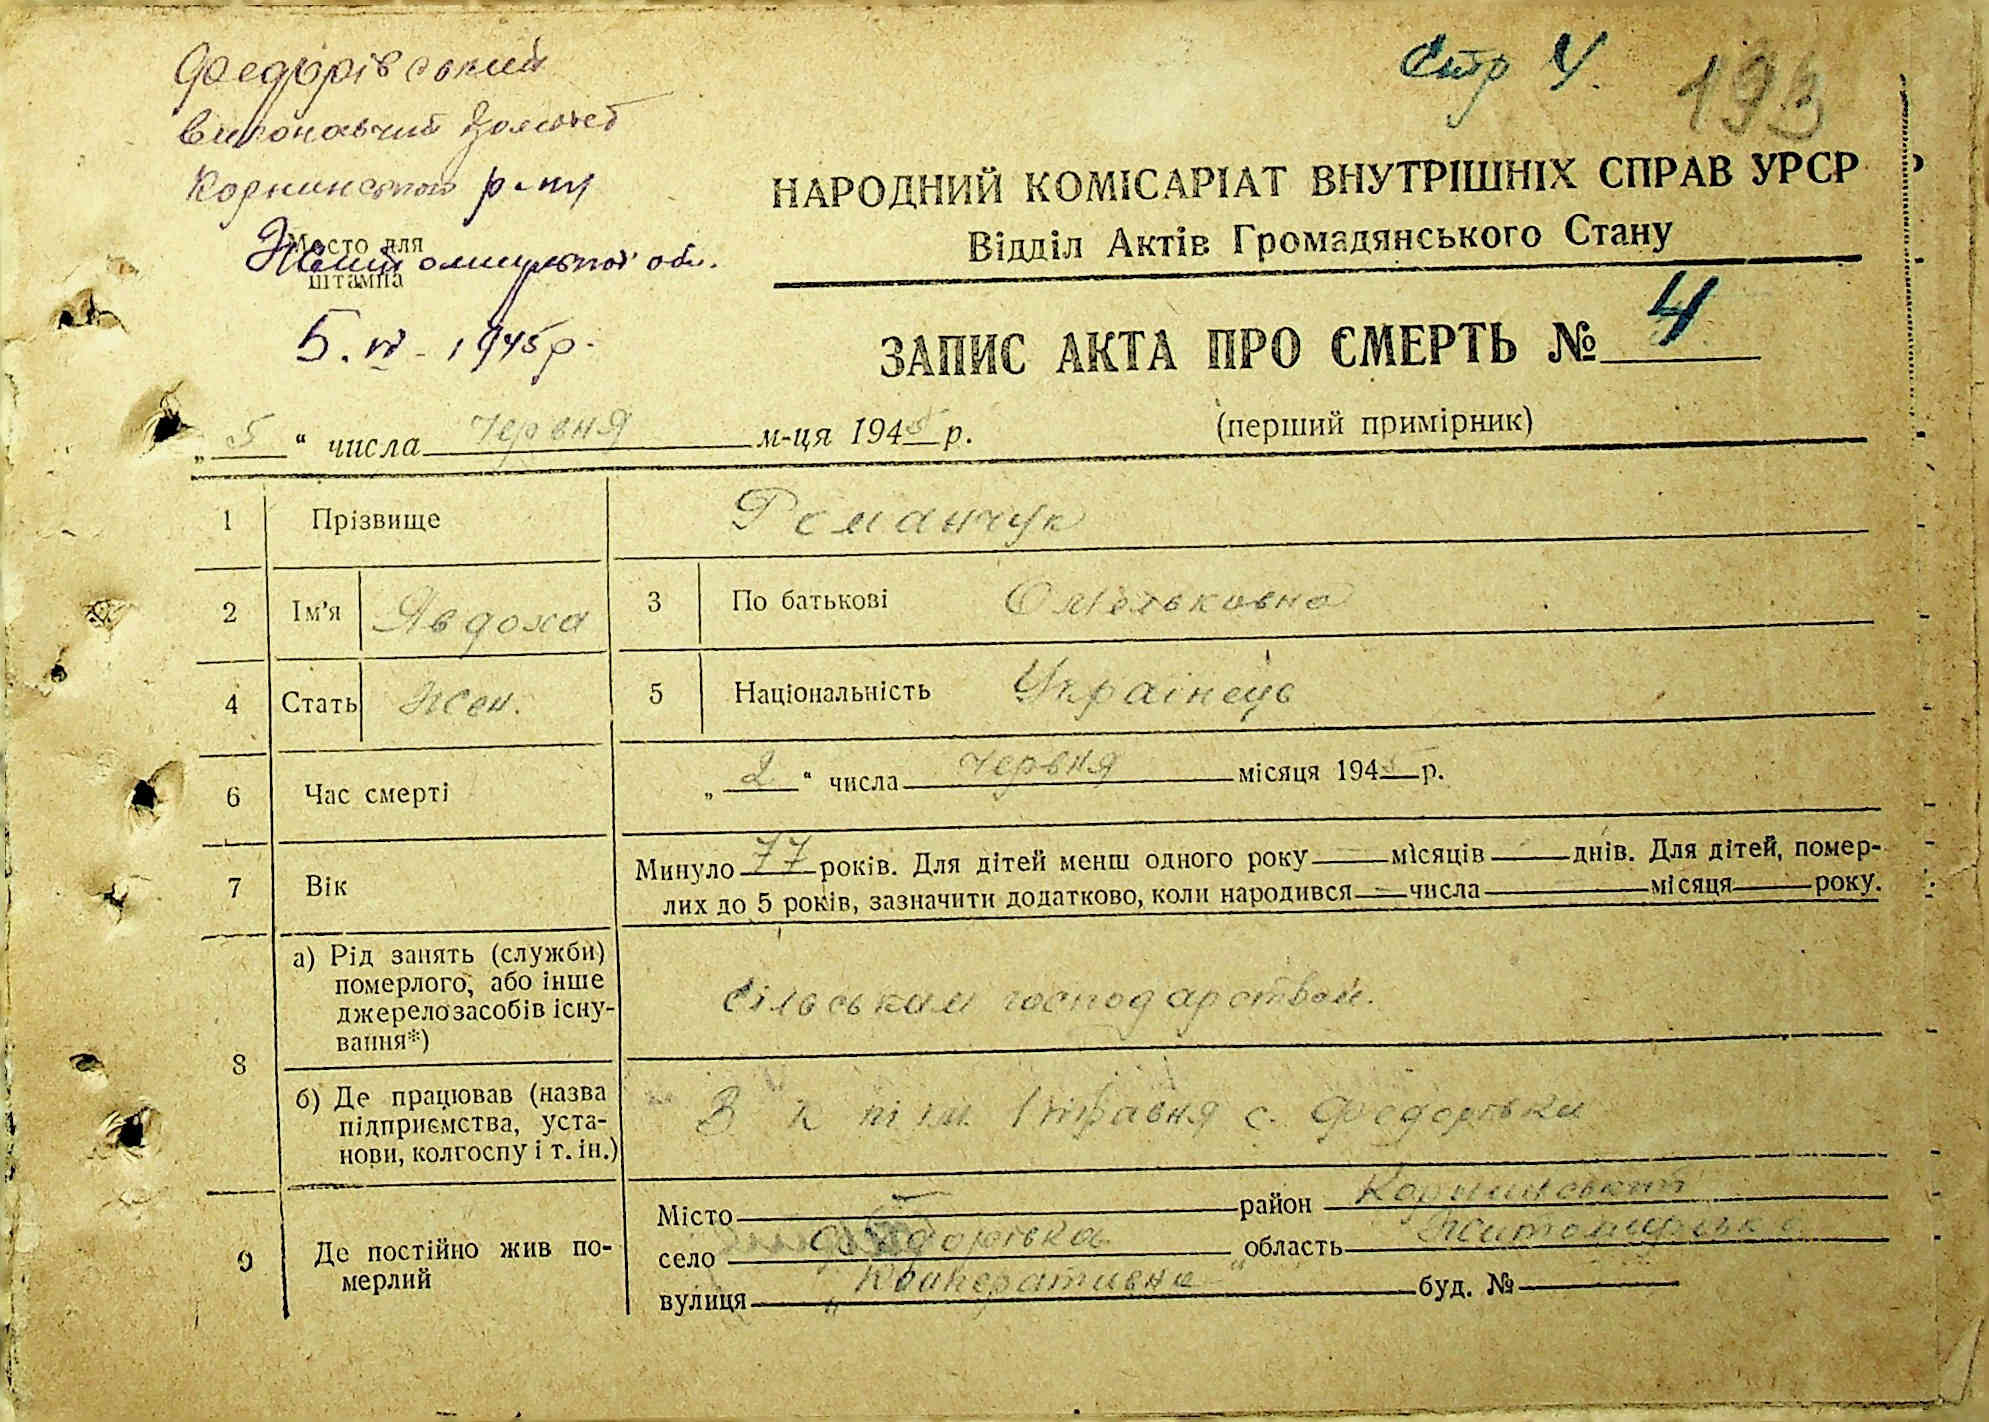 Федорівський
виконавчий комітет
Корнинського р-ну
Место для
штампа
Житомирської обл.
5. VI - 1945 р.
Стр 4.
193
НАРОДНИЙ КОМІСАРІАТ ВНУТРІШНІХ СПРАВ УРСР
Відділ Актів Громадянського Стану
ЗАПИС АКТА ПРО СМЕРТЬ № 4
„ 5 “ числа червня м-ця 1945 р.
(перший примірник)
1 Прізвище Романчук
2 Ім'я Явдоха 3 По батькові Омельковна
4 Стать Жен. 5 Національність Українець
6 Час смерті „ 2 “ числа червня місяця 1945 р.
7 Вік Минуло 77 років. Для дітей менш одного року — місяців — днів. Для дітей, помер-
лих до 5 років, зазначити додатково, коли народився — числа — місяця — року.
8 а) Рід занять (служби)
померлого, або інше
джерело засобів існу-
вання*)
Сільським господарством.
б) Де працював (назва
підприємства, уста-
нови, колгоспу і т. ін.)
В к 1 травня с. Федорівки
9 Де постійно жив по-
мерлий
Місто — район Корнинський
село Федорівка область Житомирська
вулиця „Кооперативна“ буд. №